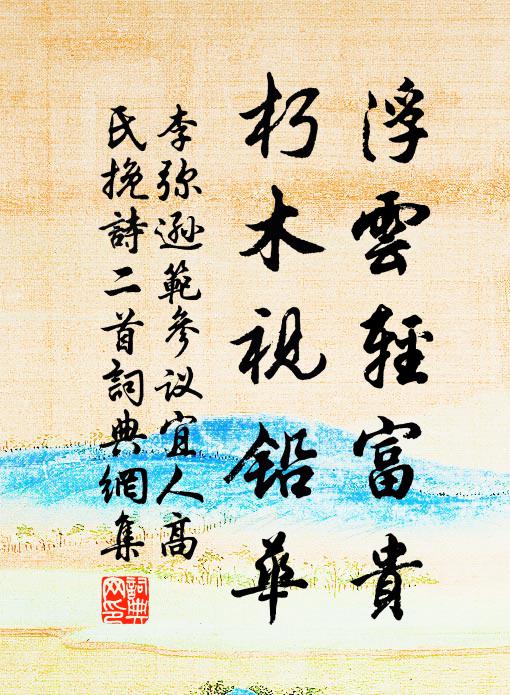 浮雲輕富貴
朽木視鉛華
李弥遜範參议宜人高
民挽詩二首詞典網集
詞典网印